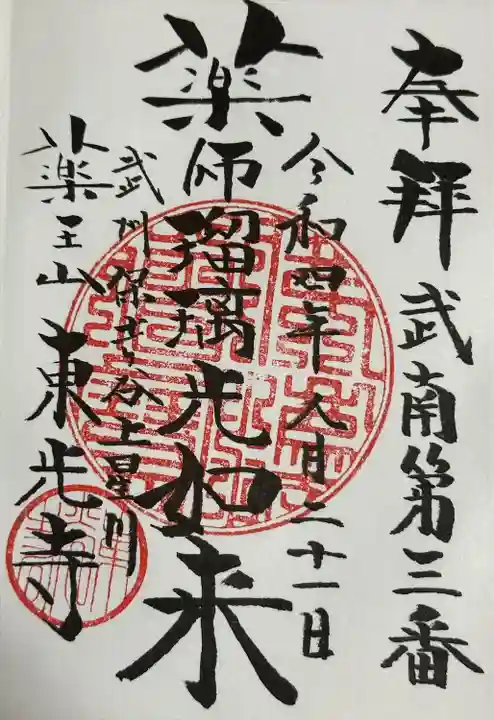 奉拝 武南第三番
令和四年八月二十一日
薬師瑠璃光如来
武州保土ヶ谷上星川
薬王山東光寺